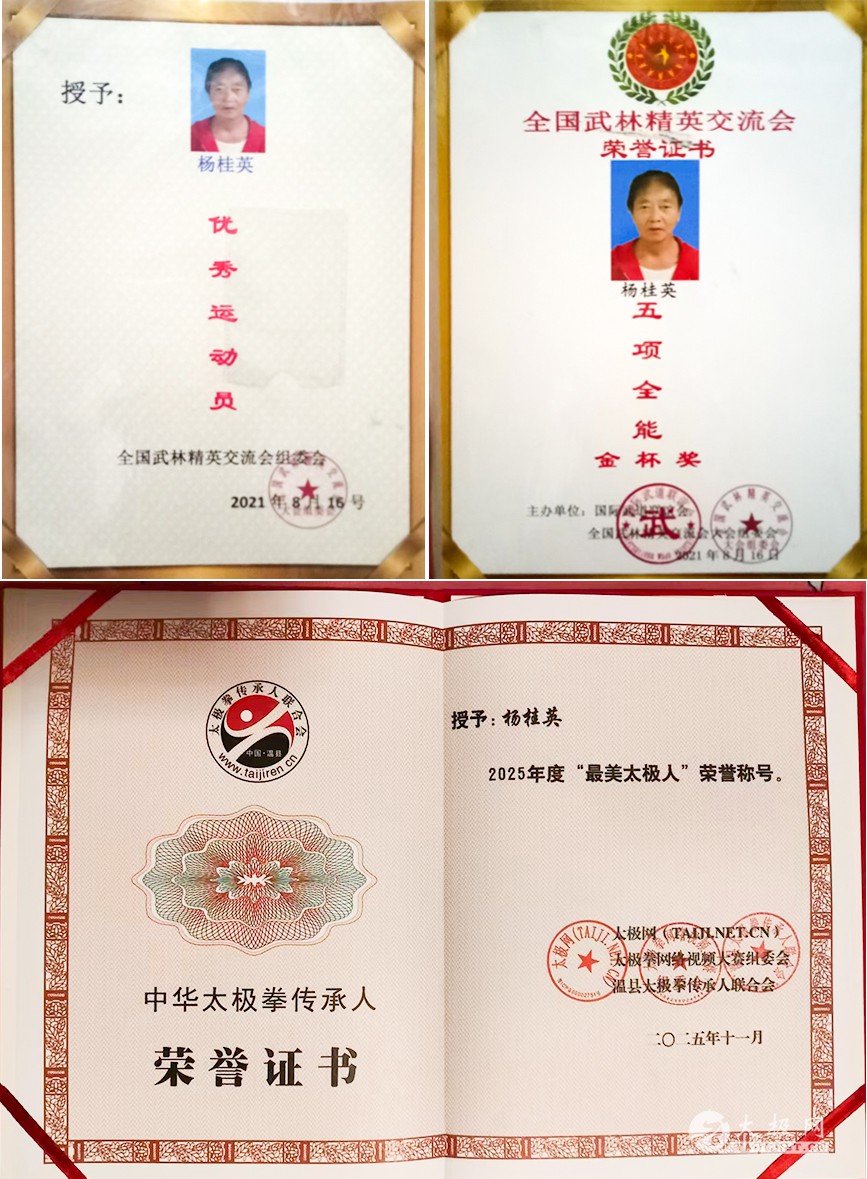 授予：
杨桂英
优
秀
运
动
员
全国武林精英交流会组委会
2021年8月16号
全国武林精英交流会
荣誉证书
杨桂英
五
项
全
能
金杯奖
主办单位：国际武道联谊会
全国武林精英交流会大会组委会
2021年8月16日
武
太极拳传承人联合会
中国·温县
www.taijiren.cn
中华太极拳传承人
荣誉证书
授予：杨桂英
2025年度“最美太极人”荣誉称号。
太极网（TAIJI.NET.CN）
太极拳网络视频大赛组委会
温县太极拳传承人联合会
二〇二五年十一月
太极网(TAIJI.NET.CN)
太极网